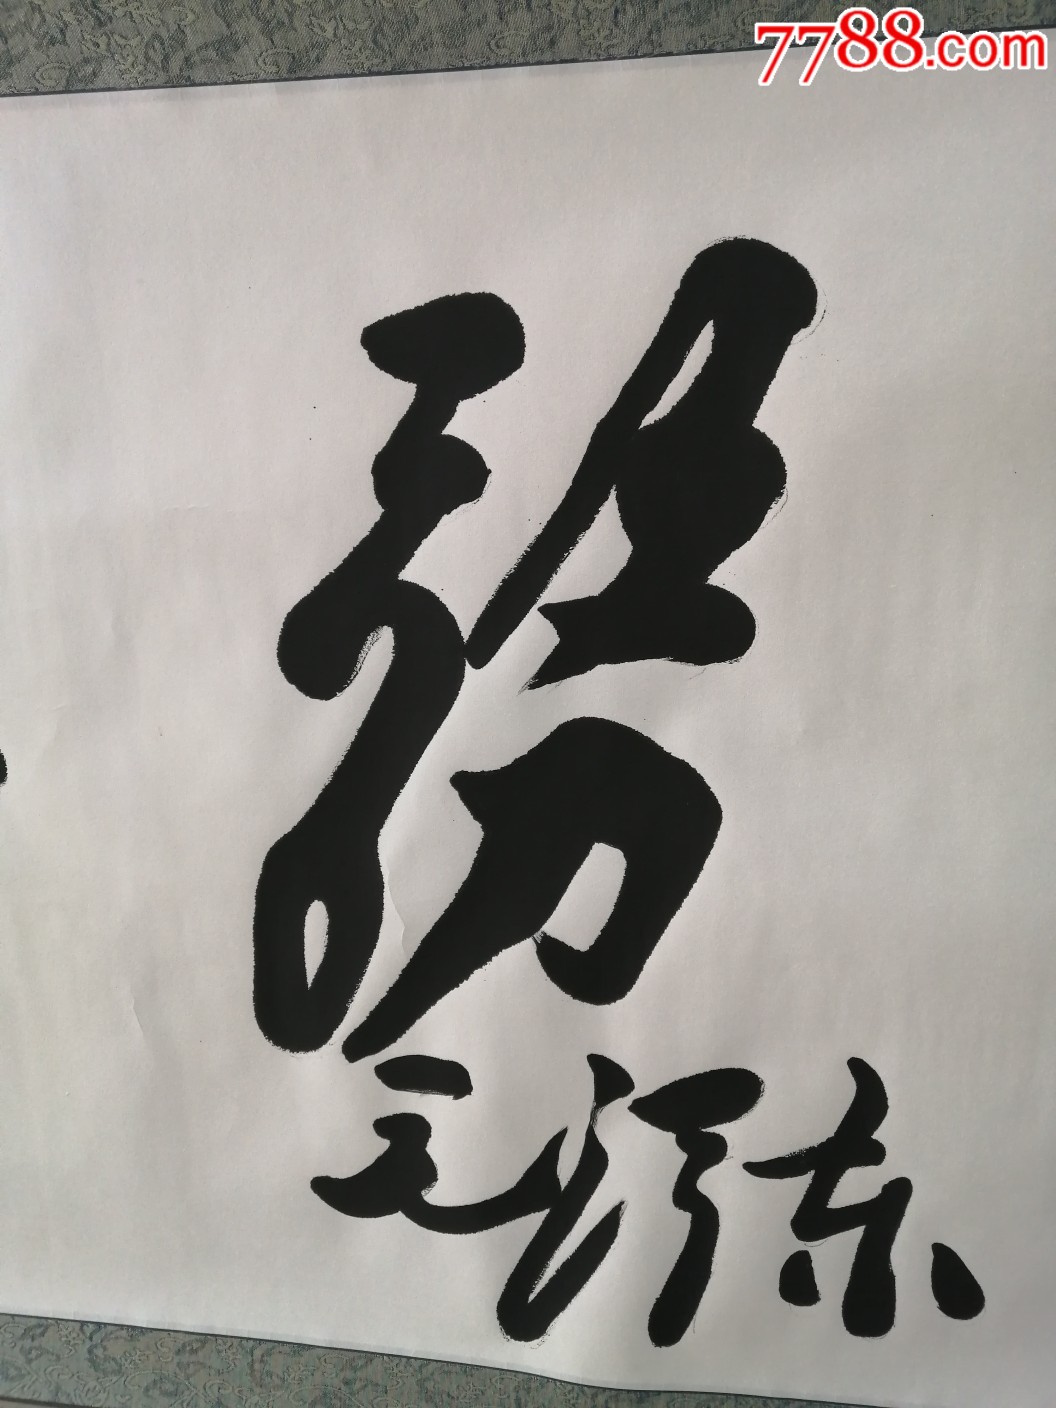 務
毛泽东
7788.com